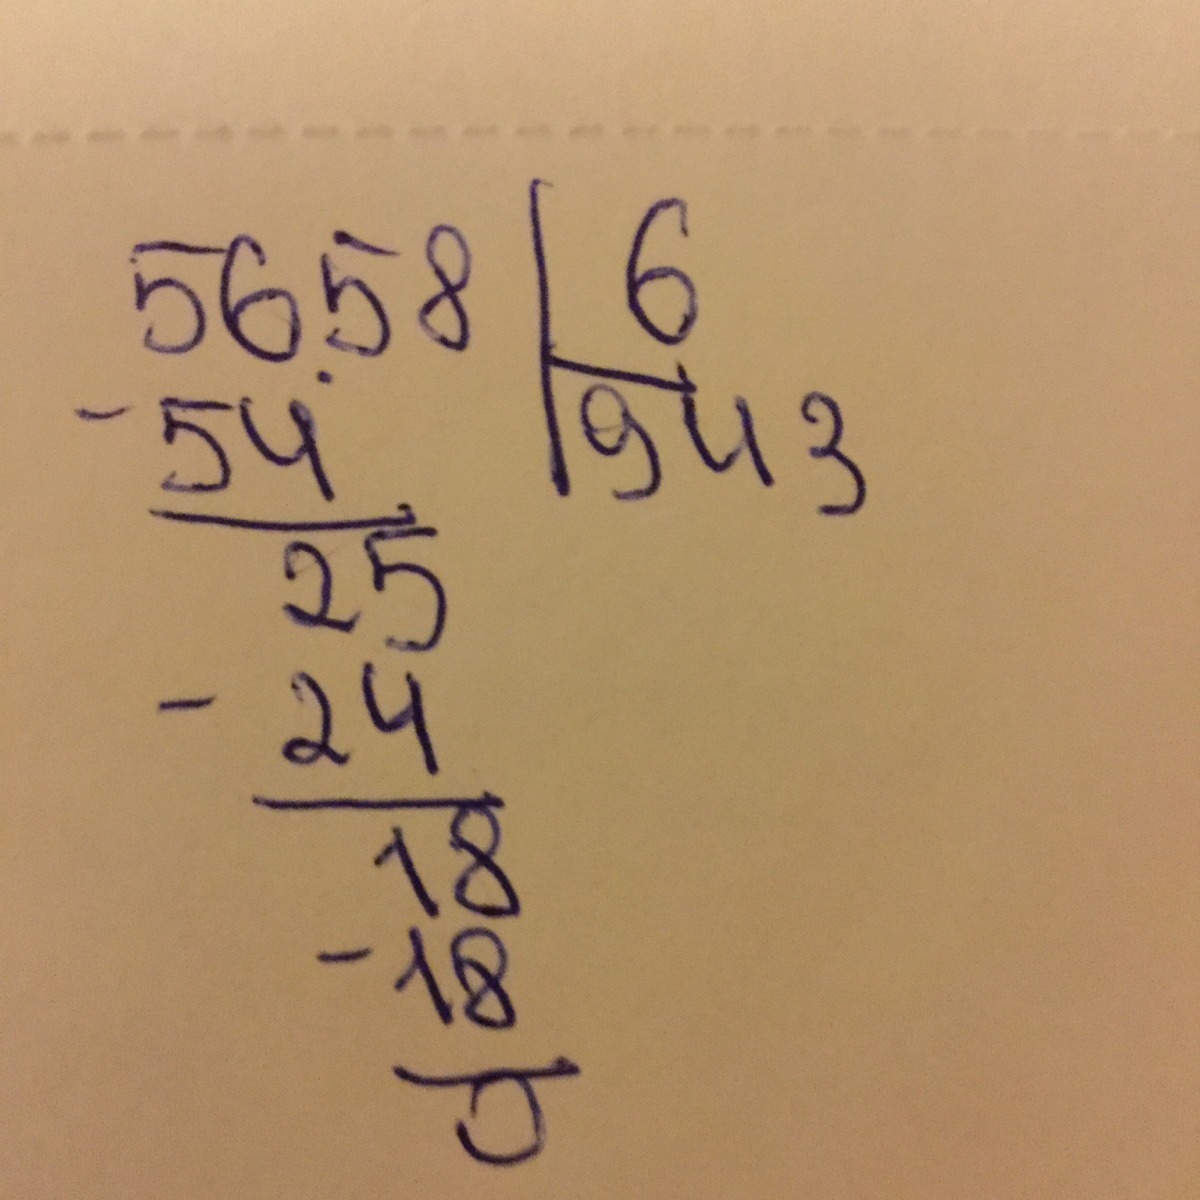 5658 | 6
- 54 | 943
25
- 24
18
- 18
0